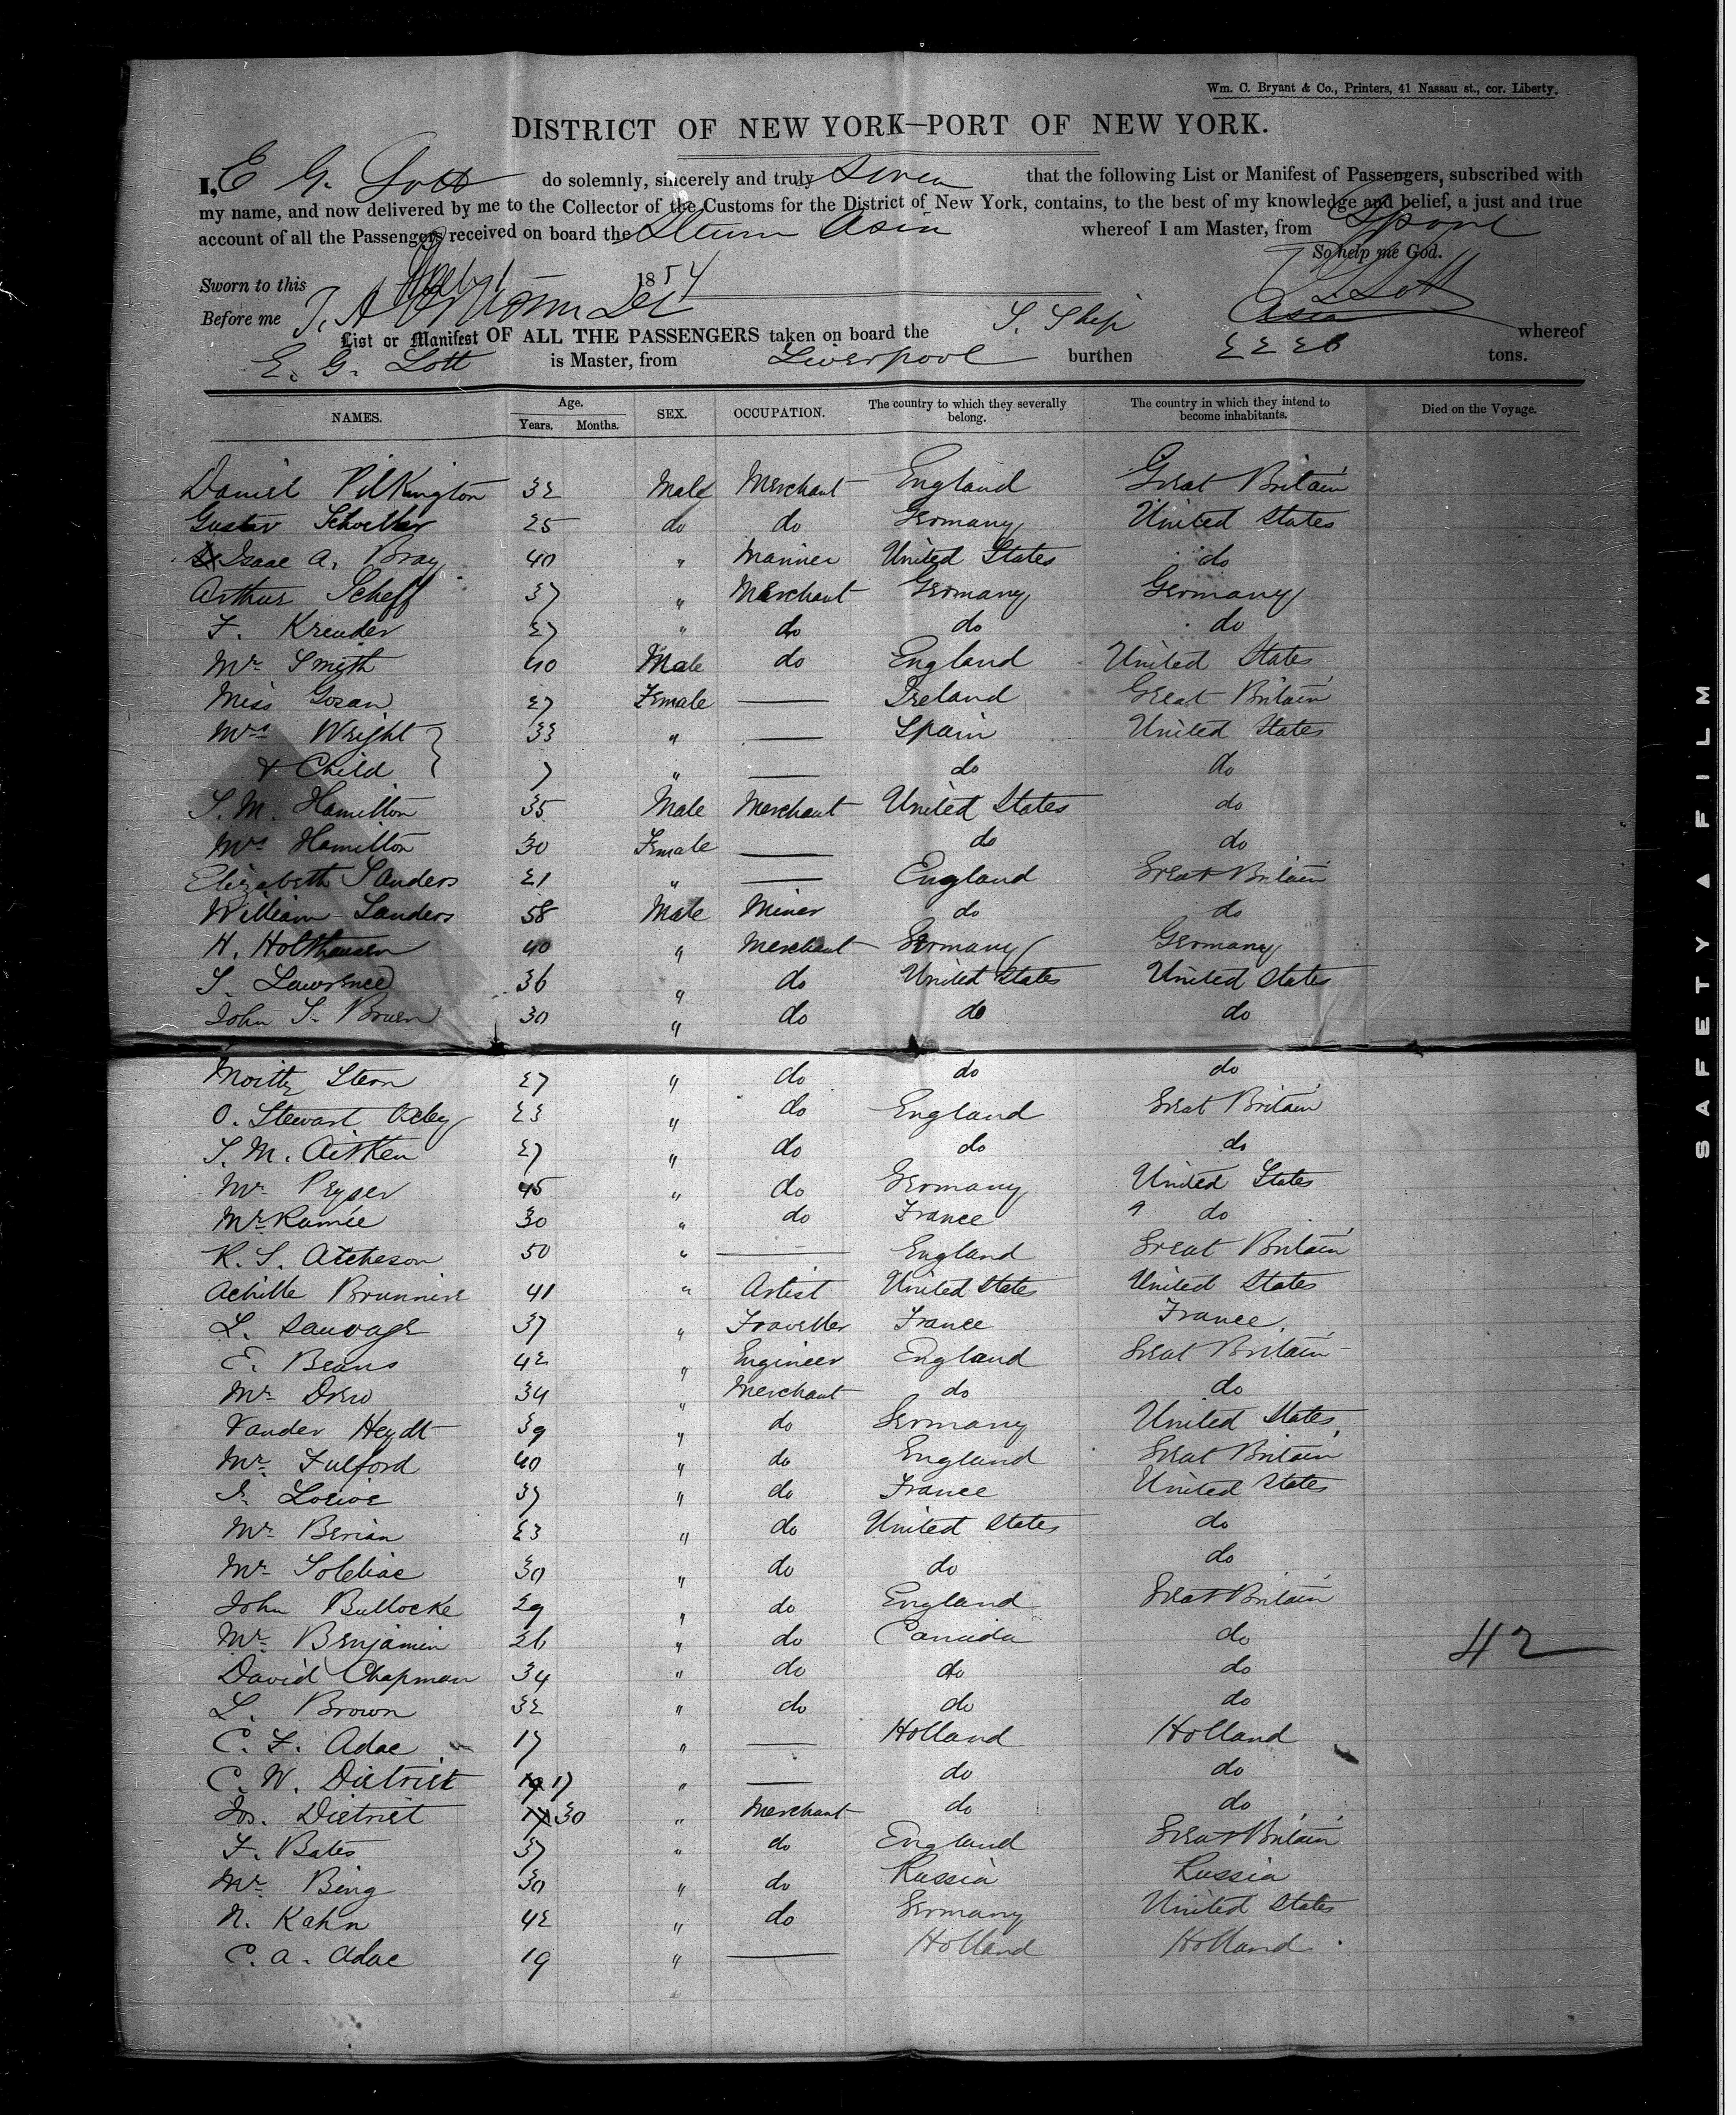 Wm. C. Bryant & Co., Printers, 41 Nassau st., cor. Liberty.
DISTRICT OF NEW YORK—PORT OF NEW YORK.
I, E. G. Lott do solemnly, sincerely and truly that the following List or Manifest of Passengers, subscribed with
my name, and now delivered by me to the Collector of the Customs for the District of New York, contains, to the best of my knowledge and belief, a just and true
account of all the Passengers received on board the Steam Asia whereof I am Master, from Lpool
So help me God.
Sworn to this 1854
Before me E G Lott
List or Manifest OF ALL THE PASSENGERS taken on board the S. Ship Asia whereof
E. G. Lott is Master, from Liverpool burthen 2226 tons.
NAMES. Age. Years. Months. SEX. OCCUPATION. The country to which they severally belong. The country in which they intend to become inhabitants. Died on the Voyage.
Daniel Pilkington 32 Male Merchant England Great Britain
Gustav 25 do do Germany United States
Isaac A. Bray 40 " Mariner United States do
Arthur Scheff 37 " Merchant Germany Germany
F. Kreuder 27 " do do do
Mr. Smyth 40 Male do England United States
Miss Gozan 27 Female — Ireland Great Britain
Mrs Wright 33 " — Spain United States
& Child 7 " — do do
S. M. Hamilton 35 Male Merchant United States do
Mrs Hamilton 30 Female — do do
Elizabeth Sanders 21 " — England Great Britain
William Sanders 58 Male Miner do do
H. Holthausen 40 " Merchant Germany Germany
S. Lawrence 36 " do United States United States
John S. Bruen 30 " do do do
Moritz Stern 27 " do do do
O. Stewart 23 " do England Great Britain
S. M. Aitken 27 " do do do
Mr. Peyser 45 " do Germany United States
Mr. Ramée 30 " do France do
R. S. Atcheson 50 " — England Great Britain
Achille 41 " Artist United States United States
L. Sauvage 37 " Traveller France France
E. Beans 42 " Engineer England Great Britain
Mr. Drew 34 " Merchant do do
Vander Heydt 39 " do Germany United States
Mr. Fulford 40 " do England Great Britain
37 " do France United States
Mr. Berian 23 " do United States do
Mr. 30 " do do do
John Bullocke 29 " do England Great Britain
Mr. Benjamin 26 " do Canada do 42
David Chapman 34 " do do do
L. Brown 32 " do do do
C. F. Adae 17 " — Holland Holland
C. W. Dietrich 19 17 " — do do
Jos. Dietrich 17 30 " Merchant do do
F. Bates 37 " do England Great Britain
Mr. Bing 30 " do Russia Russia
N. Kahn 42 " do Germany United States
C. A. Adae 19 " — Holland Holland
SAFETY ▲ FILM